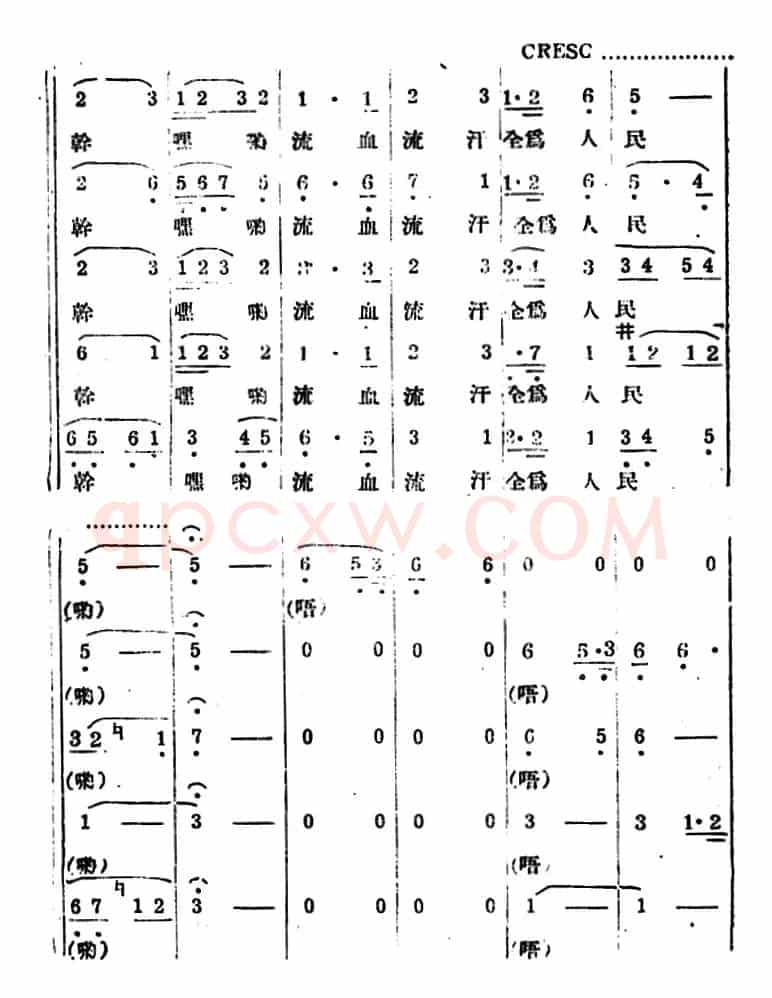 CRESC .....................
2 3 | 1 2 3 2 | 1 · 1 | 2 3 | 1·2 6 | 5 —
幹 嘿 喲 流 血 流 汗 全爲 人 民
2 6 | 5 6 7 5 | 6 · 6 | 7 1 | 1·2 6 | 5 · 4
幹 嘿 喲 流 血 流 汗 全爲 人 民
2 3 | 1 2 3 2 | 3 · 3 | 2 3 | 3·4 3 | 3 4 5 4
幹 嘿 喲 流 血 流 汗 全爲 人 民
6 1 | 1 2 3 2 | 1 · 1 | 2 3 | ·7 1 | #1 2 1 2
幹 嘿 喲 流 血 流 汗 全爲 人 民
6 5 6 1 | 3 4 5 | 6 · 5 | 3 1 | 2·2 1 | 3 4 5
幹 嘿 喲 流 血 流 汗 全爲 人 民
qpcxw.COM
...............
5 — | 5 — | 6 5 3 | 6 6 | 0 0 | 0 0
(喲) (唔)
5 — | 5 — | 0 0 | 0 0 | 6 5·3 | 6 6 ·
(喲) (唔)
3 2 ♮1 | 7 — | 0 0 | 0 0 | 6 5 | 6 —
(喲) (唔)
1 — | 3 — | 0 0 | 0 0 | 3 — | 3 1·2
(喲) (唔)
6 7 ♮1 2 | 3 — | 0 0 | 0 0 | 1 — | 1 —
(喲) (唔)